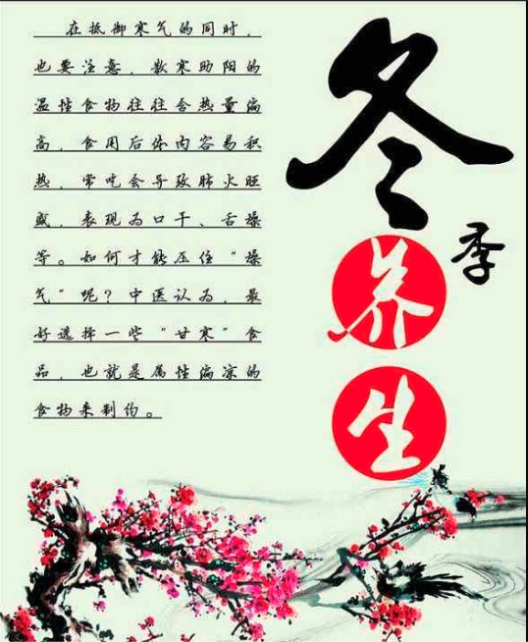 冬
季
养
生
在抵御寒气的同时，
也要注意，散寒助阳的
温性食物往往含热量偏
高，食用后体内容易积
热，常吃会导致肺火旺
盛，表现为口干、舌燥
等。如何才能压住“燥
气”呢？中医认为，最
好选择一些“甘寒”食
品，也就是属性偏凉的
食物来制约。